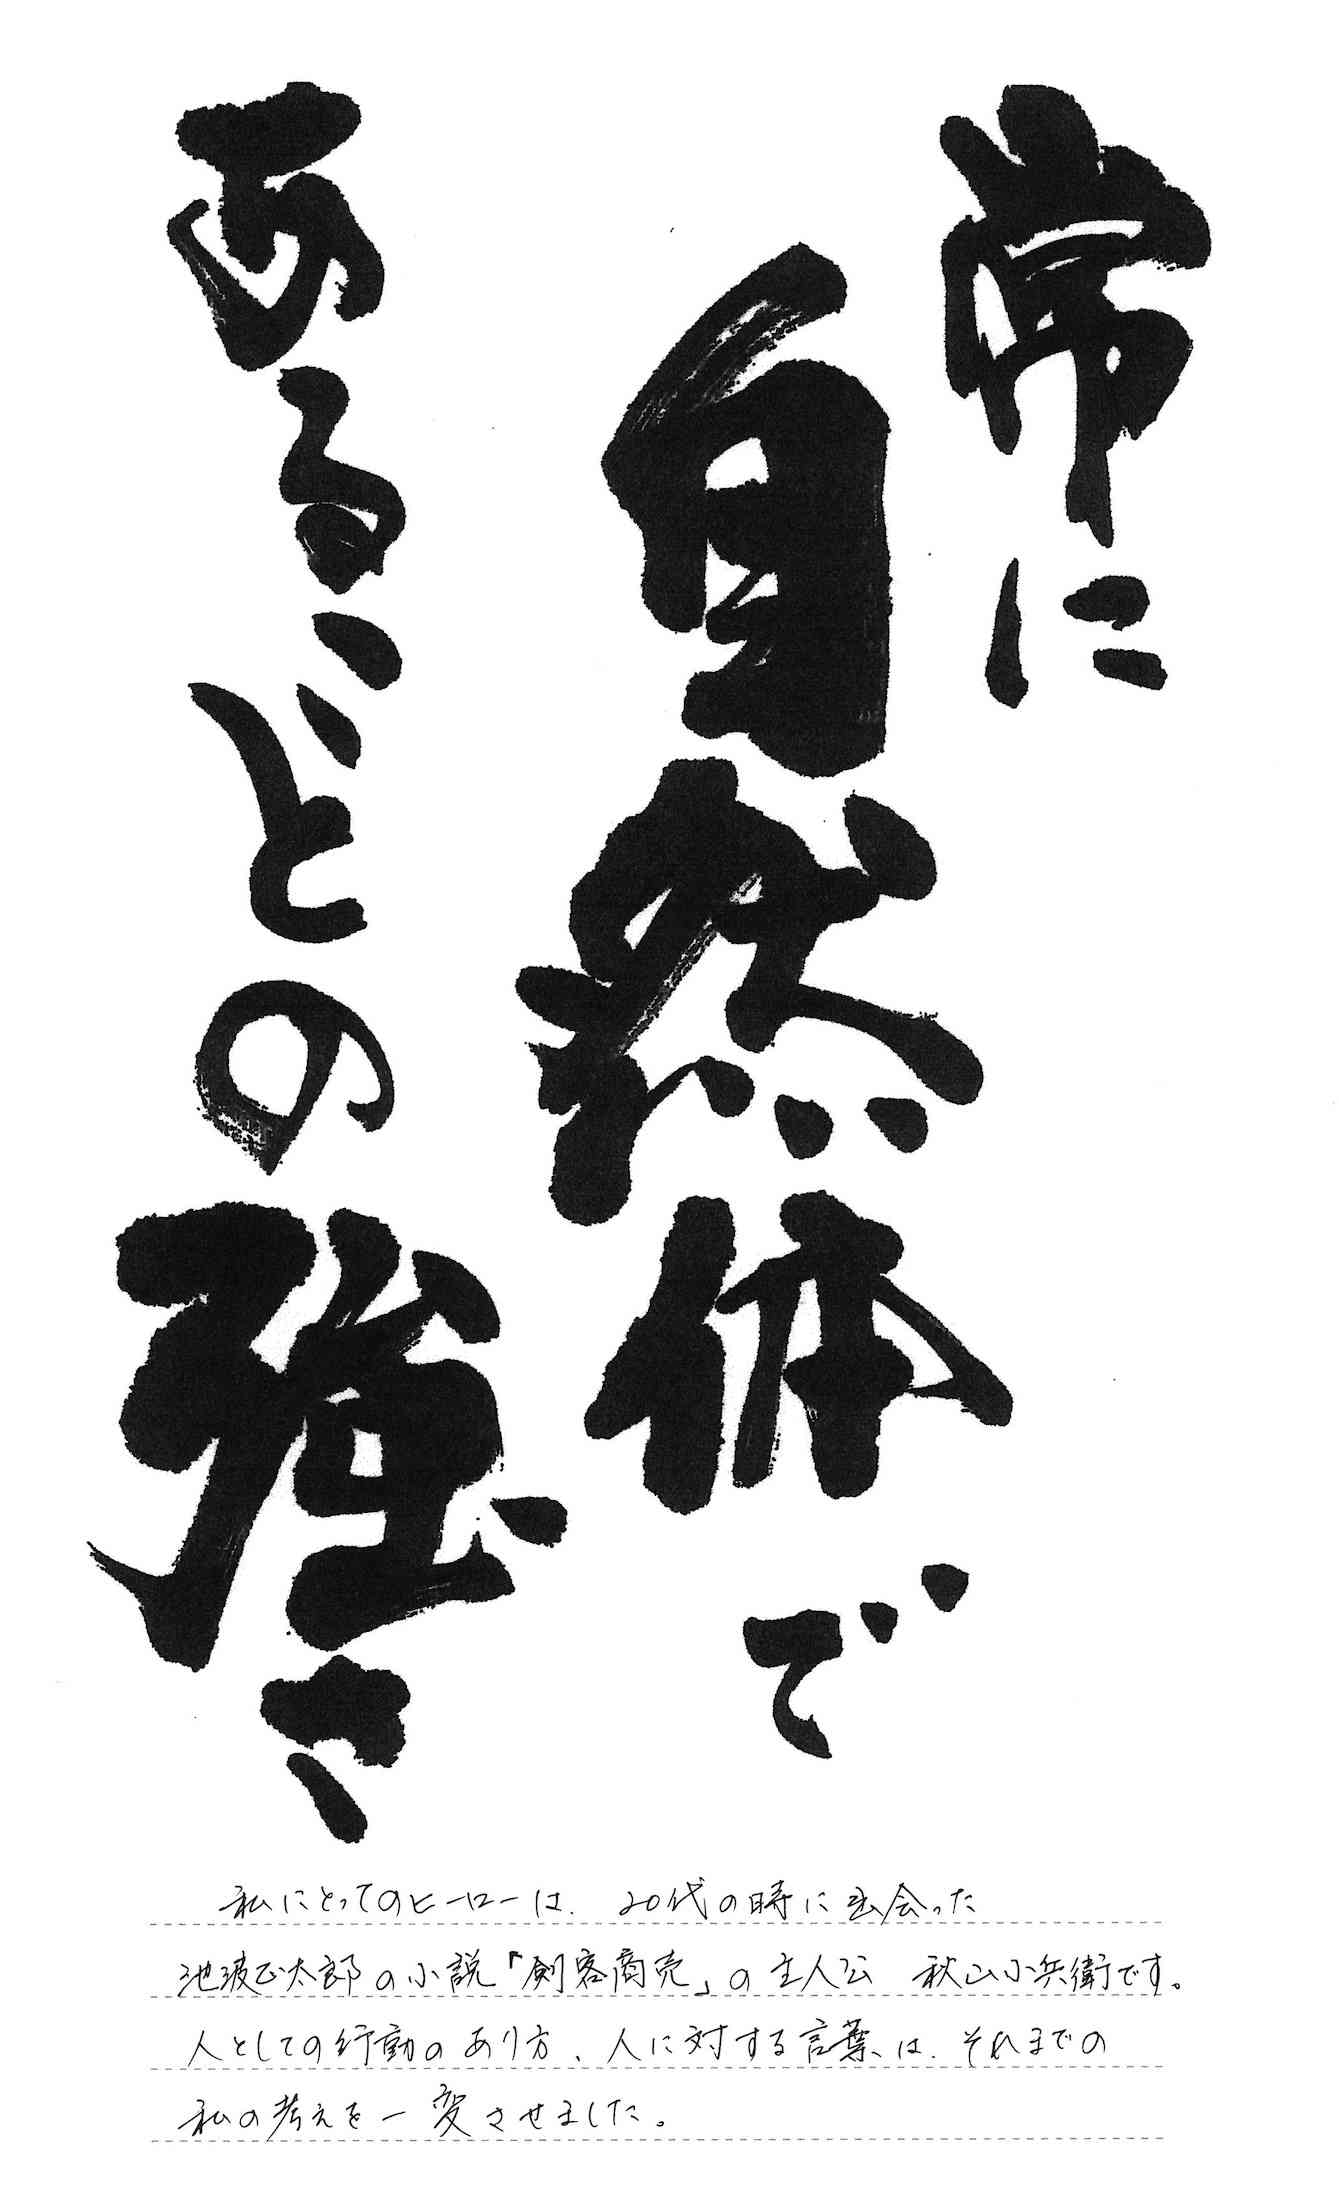 常に
自然体で
あることの強さ
私にとってのヒーローは、20代の時に出会った
池波正太郎の小説「剣客商売」の主人公 秋山小兵衛です。
人としての行動のあり方、人に対する言葉は、それまでの
私の考えを一変させました。